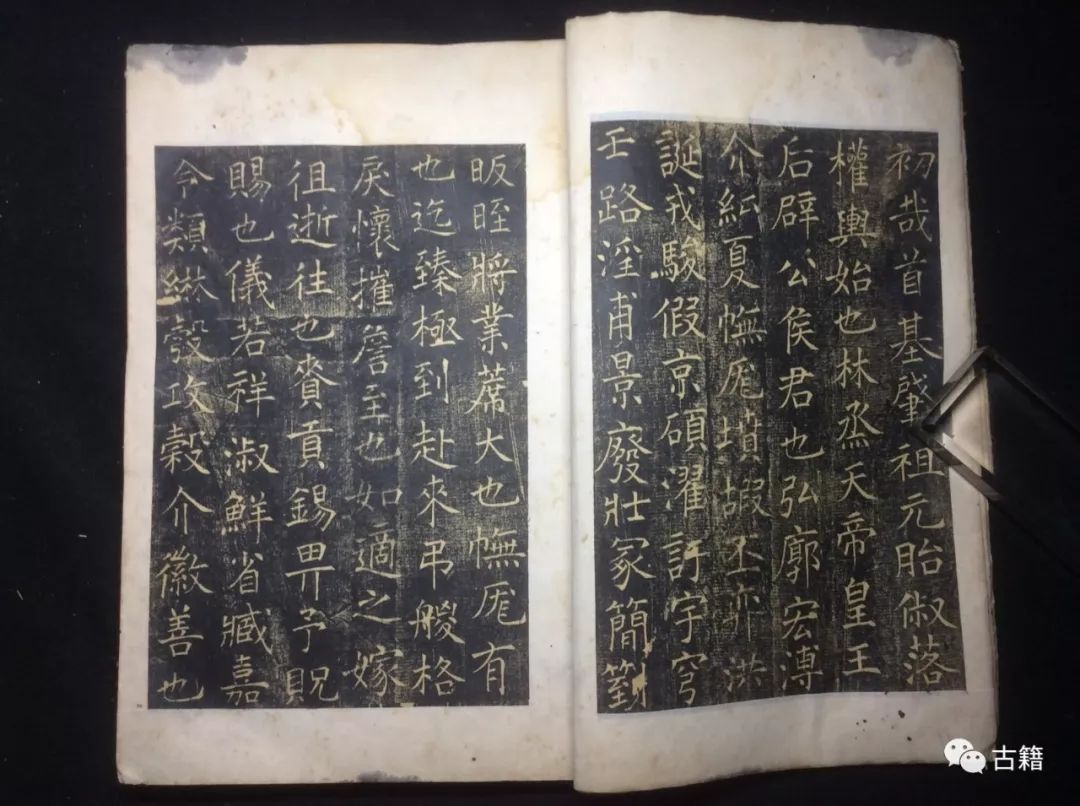 初哉首基肈祖元胎俶落
權輿始也林烝天帝皇王
后辟公侯君也弘廓宏溥
介純夏幠厖墳嘏丕弈洪
誕戎駿假京碩濯訏宇穹
壬路淫甫景廢壯冢簡箌
昄晊將業蓆大也幠厖有
也迄臻極到赴來弔艐格
戾懷摧詹至也如適之嫁
徂逝往也賚貢錫畀予貺
賜也儀若祥淑鮮省臧嘉
令類綝彀攻穀介徽善也
古籍